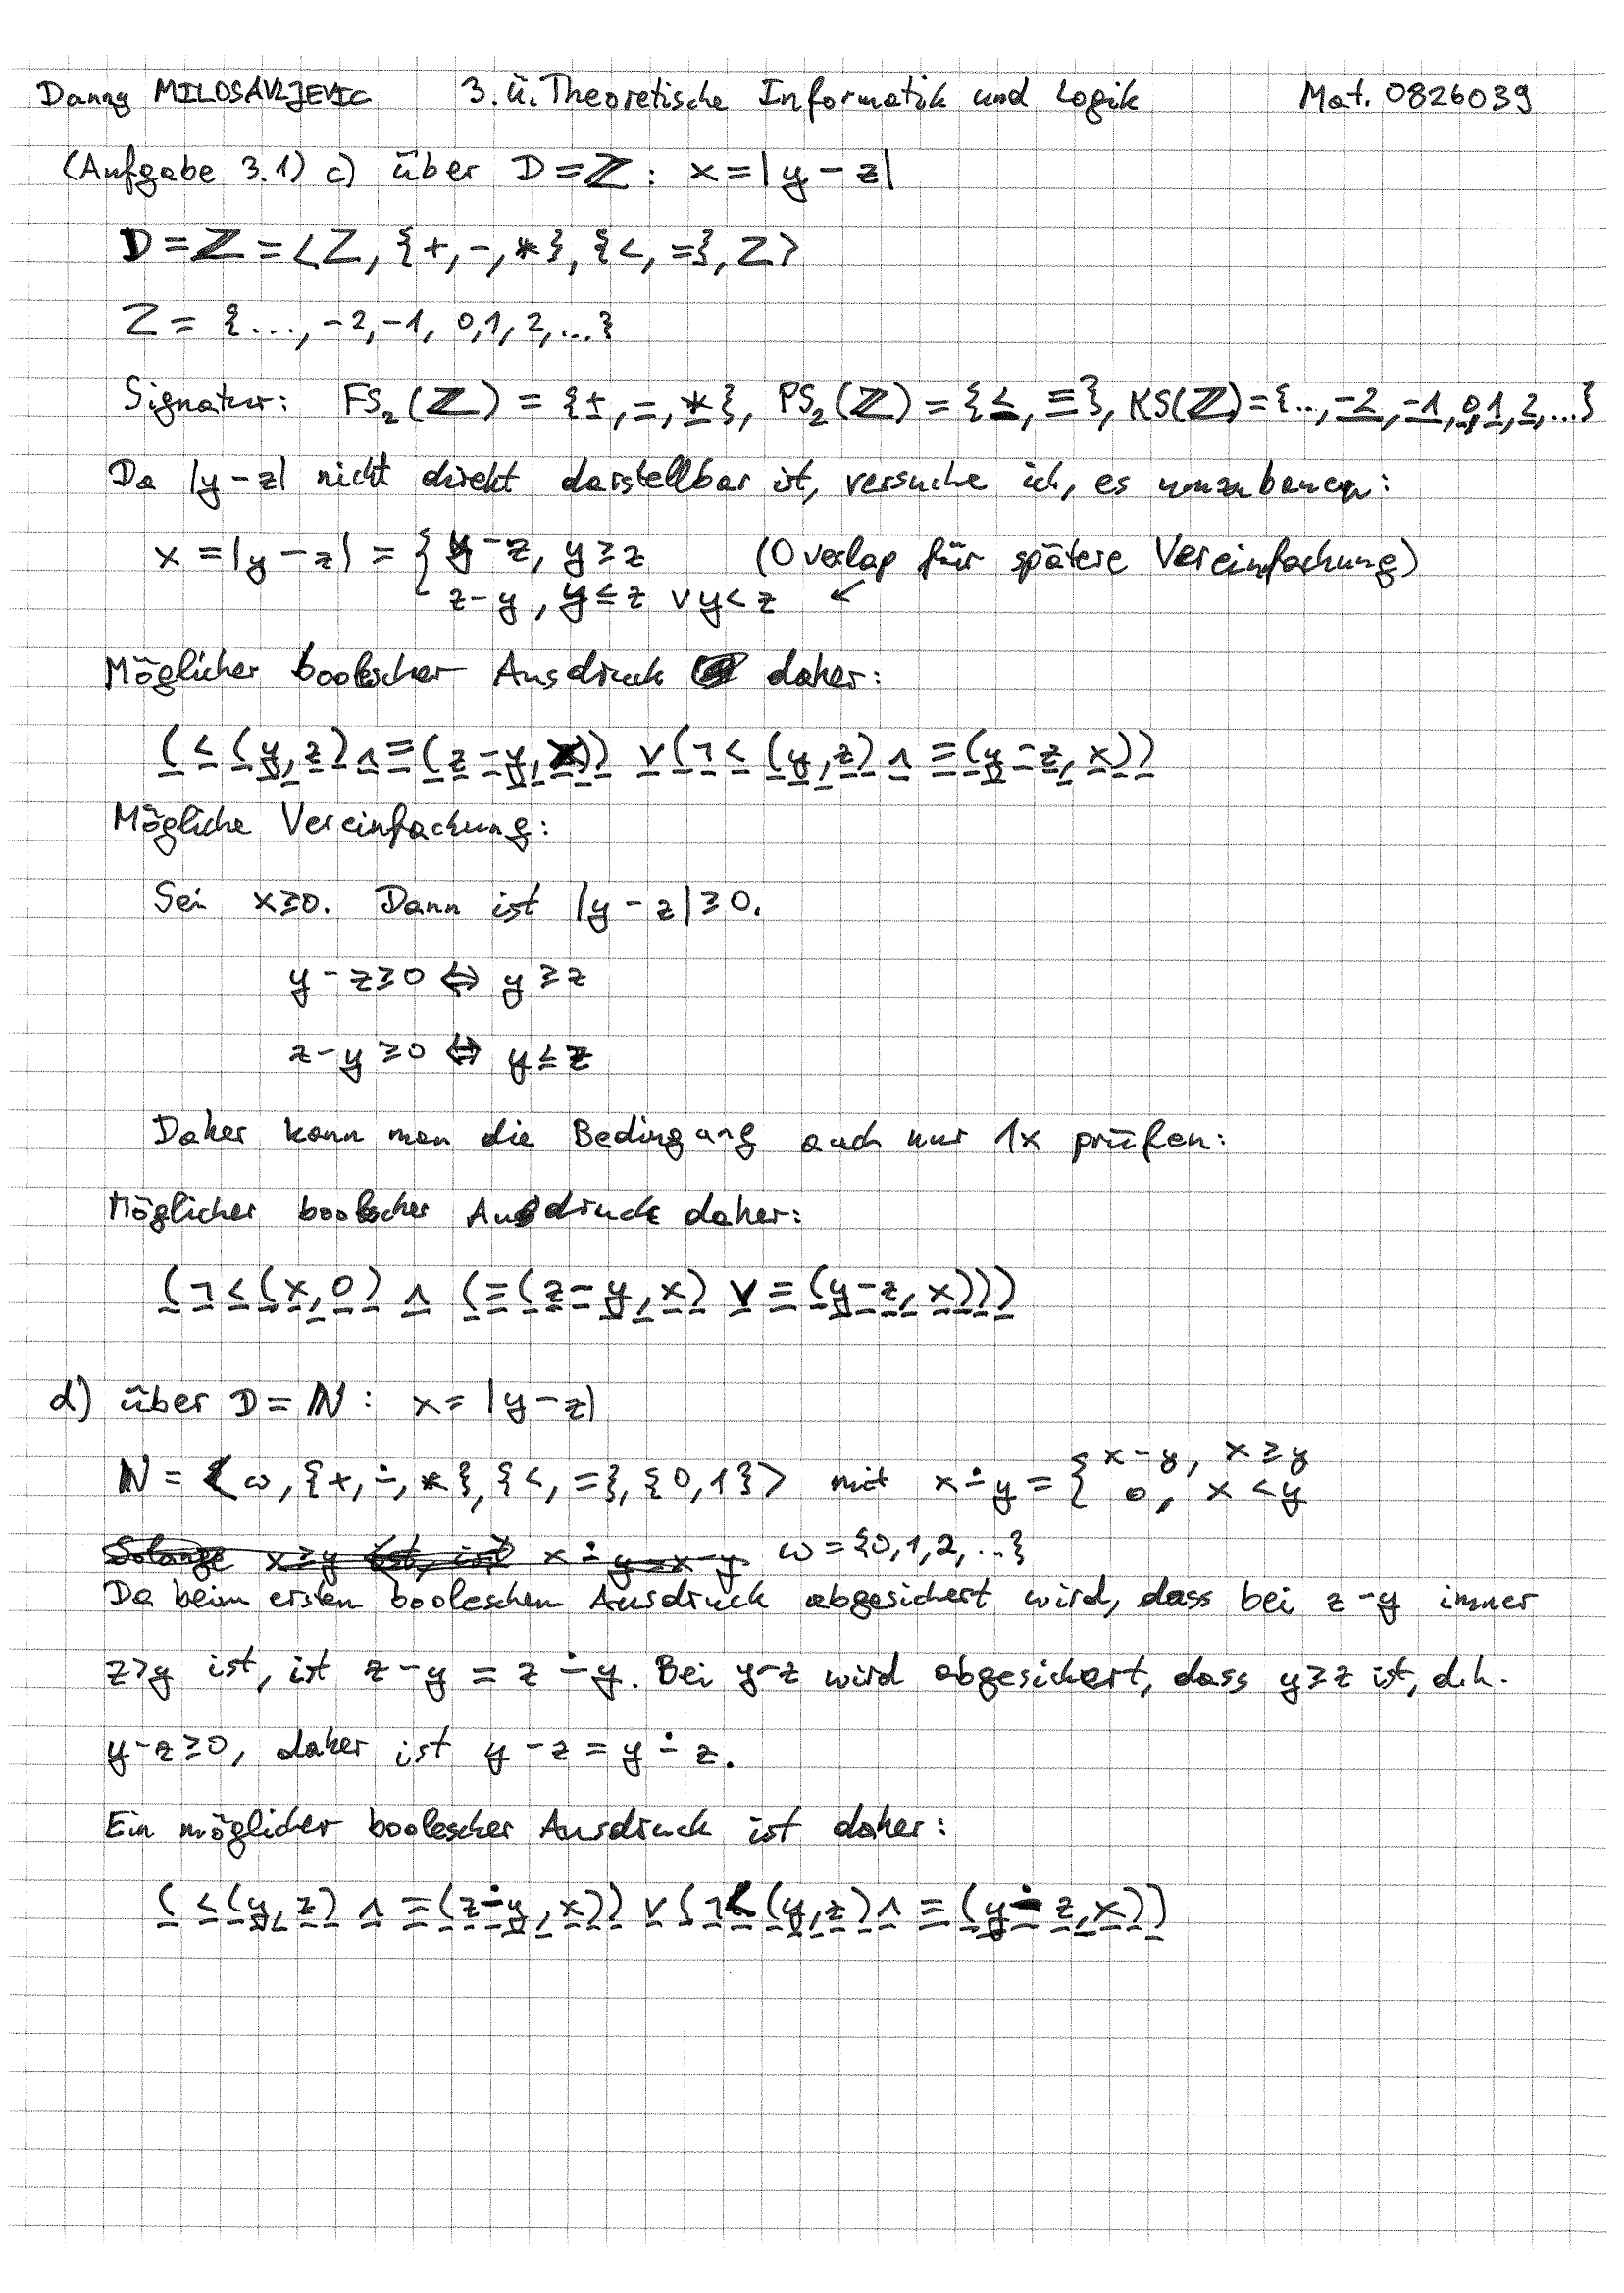 Danny MILOSAVLJEVIC 3. Ü. Theoretische Informatik und Logik Mat. 0826039
(Aufgabe 3.1) c) über D=ℤ: x=|y-z|
D=ℤ=<Z, {+,-,*}, {<,=}, Z>
Z = {..., -2,-1, 0,1,2,...}
Signatur: FS₂(ℤ) = {+,-,*}, PS₂(ℤ) = {<,=}, KS(ℤ)={..,-2,-1,0,1,2,...}
Da |y-z| nicht direkt darstellbar ist, versuche ich, es umzubauen:
x = |y-z| = { y-z, y≥z (Overlap für spätere Vereinfachung)
z-y, y≤z ∨ y<z ↙
Möglicher boolscher Ausdruck daher:
(<(y,z)∧=(z-y,x)) ∨(¬<(y,z)∧=(y-z,x))
Mögliche Vereinfachung:
Sei x≥0. Dann ist |y-z|≥0.
y-z≥0 ⇔ y≥z
z-y≥0 ⇔ y≤z
Daher kann man die Bedingung auch nur 1x prüfen:
Möglicher boolscher Ausdruck daher:
(¬<(x,0) ∧ (=(z-y,x) ∨=(y-z,x)))
d) über D=ℕ: x=|y-z|
ℕ = <ω, {+,∸,*}, {<,=}, {0,1}> mit x∸y = { x-y, x≥y
0, x<y
Solange x≥y ist, ist x∸y=x-y ω={0,1,2,...}
Da beim ersten booleschen Ausdruck abgesichert wird, dass bei z-y immer
z>y ist, ist z-y = z∸y. Bei y-z wird abgesichert, dass y≥z ist, d.h.
y-z≥0, daher ist y-z = y∸z.
Ein möglicher boolescher Ausdruck ist daher:
(<(y,z) ∧ =(z∸y,x)) ∨(¬<(y,z)∧ =(y∸z,x))